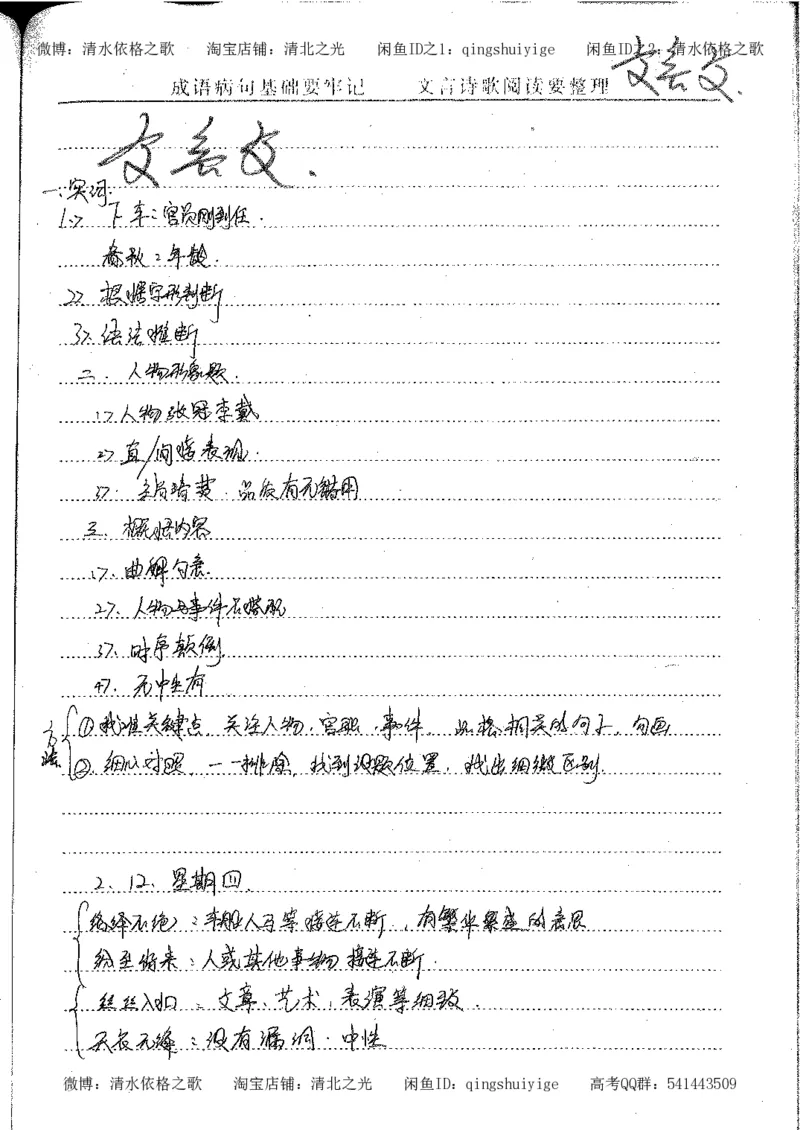 微博：清水依格之歌 淘宝店铺：清北之光 闲鱼ID之1：qingshuiyige 闲鱼ID之2：清水依格之歌
成语病句基础要牢记 文言诗歌阅读要整理 文言文.
文言文.
一.实词:
1.> 下车：官员刚到任.
春秋：年龄.
2> 根据字形判断
3>.语法推断
二. 人物形象题.
1>人物张冠李戴
2>直/间接表现.
3>. 品质有无错用
三. 概括内容
1>.曲解句意.
2>. 人物与事件不搭配
3>.时序颠倒.
4>. 无中生有
方法 ①找准关键点. 关注人物,官职,事件. 相关的句子. 勾画
②.细心对照, 一一排除, 找到设题位置, 找出细微区别.
2. 12. 星期四.
络绎不绝：车船人马等接连不断,有繁华繁盛的意思
纷至沓来：人或其他事物接连不断.
丝丝入扣：文章、艺术,表演等细致.
天衣无缝：没有漏洞.中性
微博：清水依格之歌 淘宝店铺：清北之光 闲鱼ID：qingshuiyige 高考QQ群：541443509